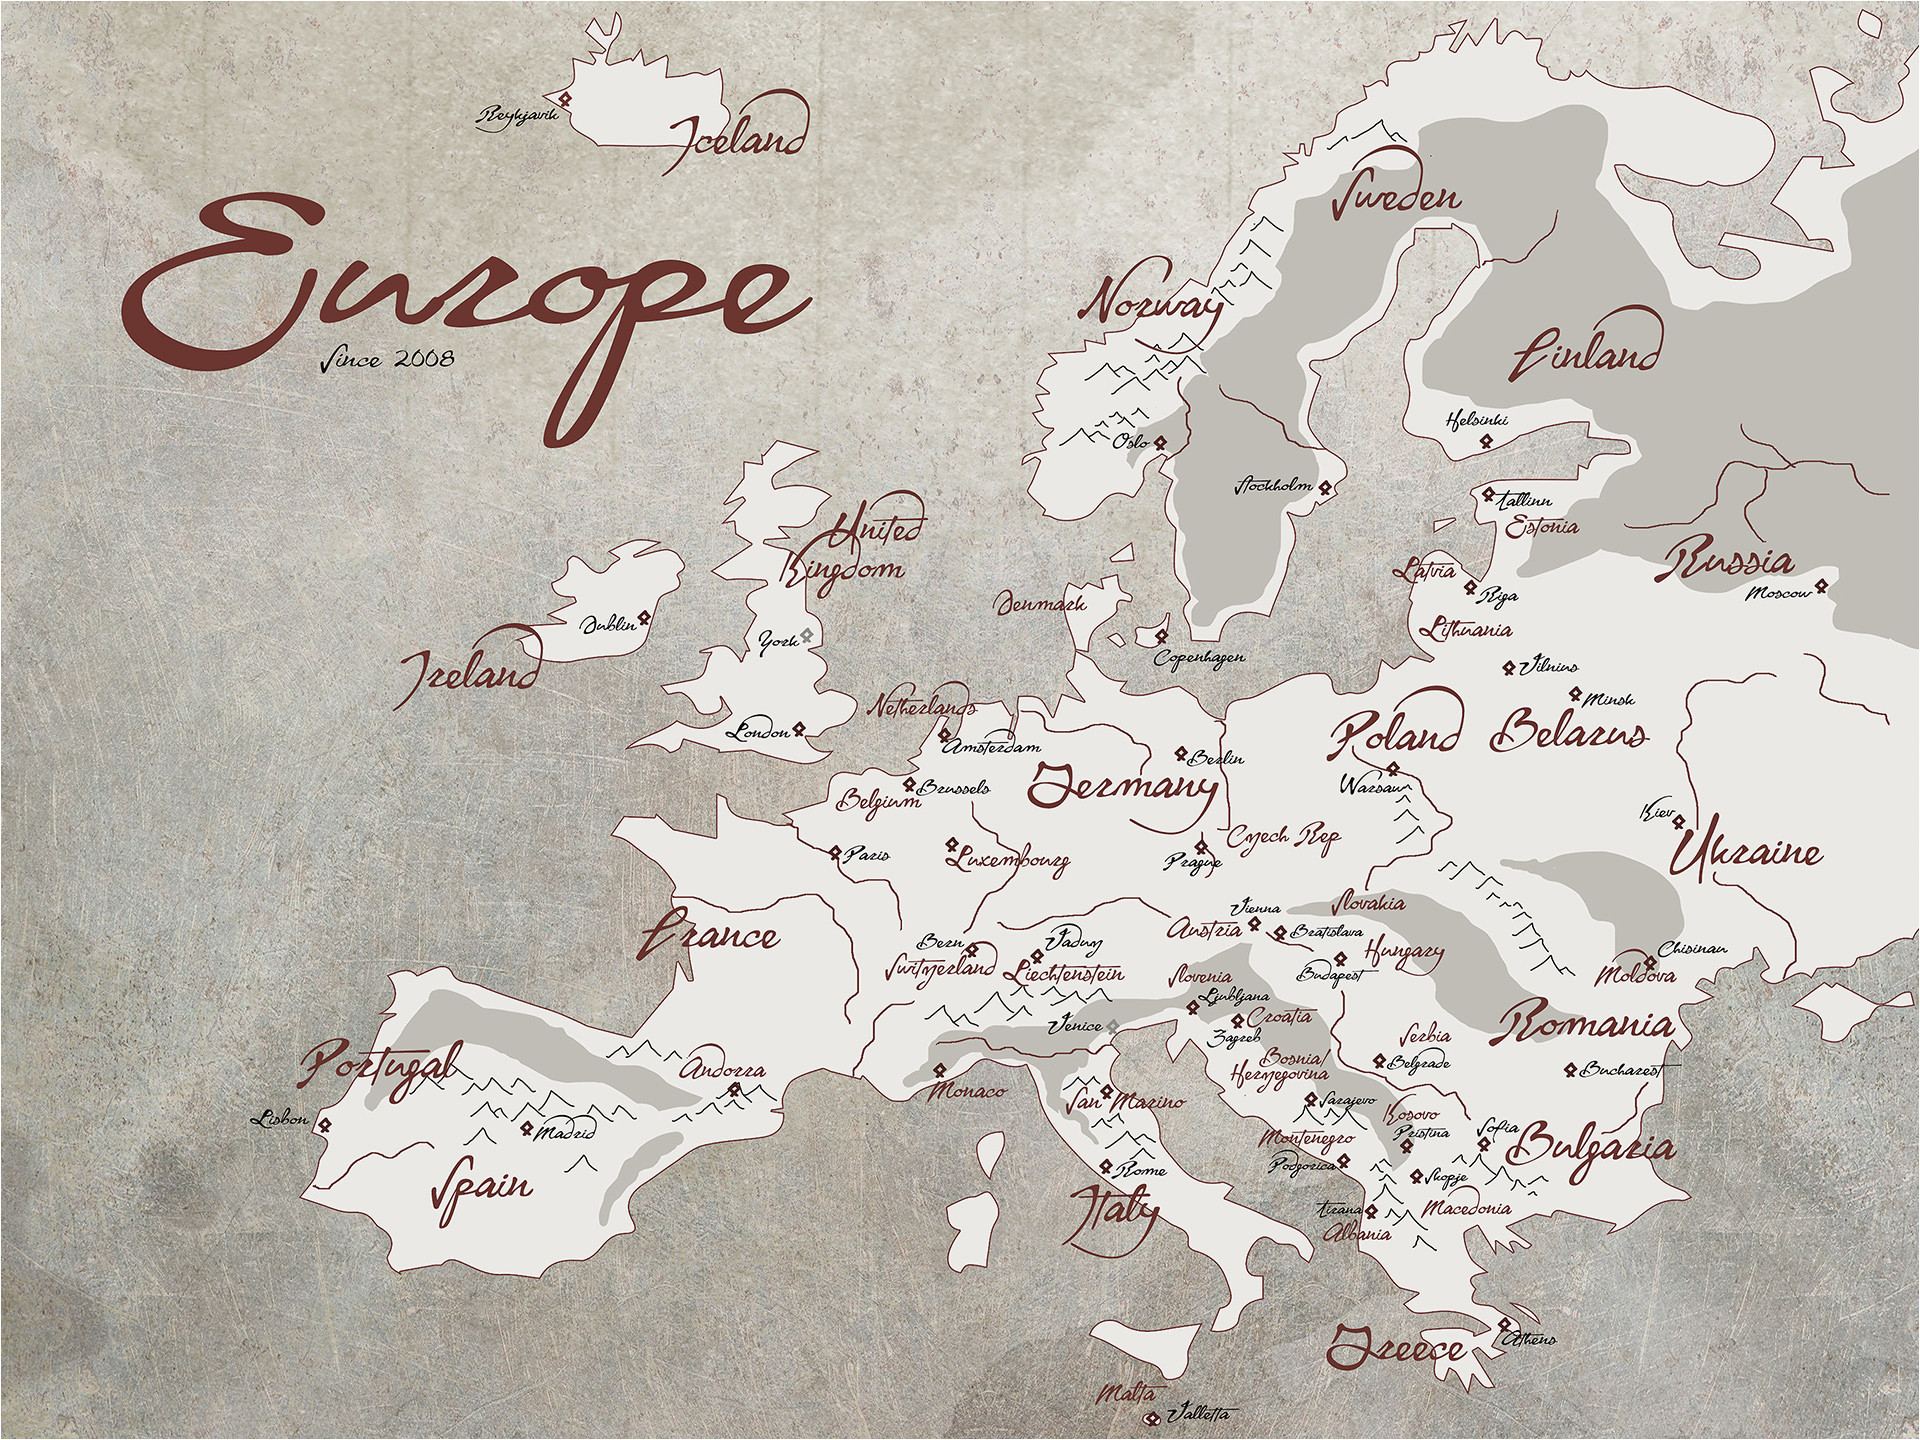 Reykjavik
Iceland
Europe
Since 2008
Sweden
Norway
Finland
Helsinki
Oslo
Stockholm
Tallinn
Estonia
United
Kingdom
Russia
Moscow
Latvia
Riga
Denmark
Dublin
York
Lithuania
Copenhagen
Ireland
Vilnius
Minsk
Netherlands
London
Amsterdam
Poland
Belarus
Berlin
Germany
Warsaw
Brussels
Belgium
Kiev
Ukraine
Czech Rep
Prague
Paris
Luxembourg
Slovakia
Vienna
Austria
Bratislava
France
Bern
Vaduz
Hungary
Chisinau
Switzerland
Liechtenstein
Budapest
Moldova
Slovenia
Ljubljana
Croatia
Zagreb
Venice
Romania
Serbia
Belgrade
Bosnia/
Herzegovina
Portugal
Andorra
Bucharest
Monaco
San Marino
Sarajevo
Kosovo
Pristina
Lisbon
Madrid
Sofia
Bulgaria
Montenegro
Podgorica
Rome
Skopje
Spain
Italy
Tirana
Macedonia
Albania
Athens
Greece
Malta
Valletta